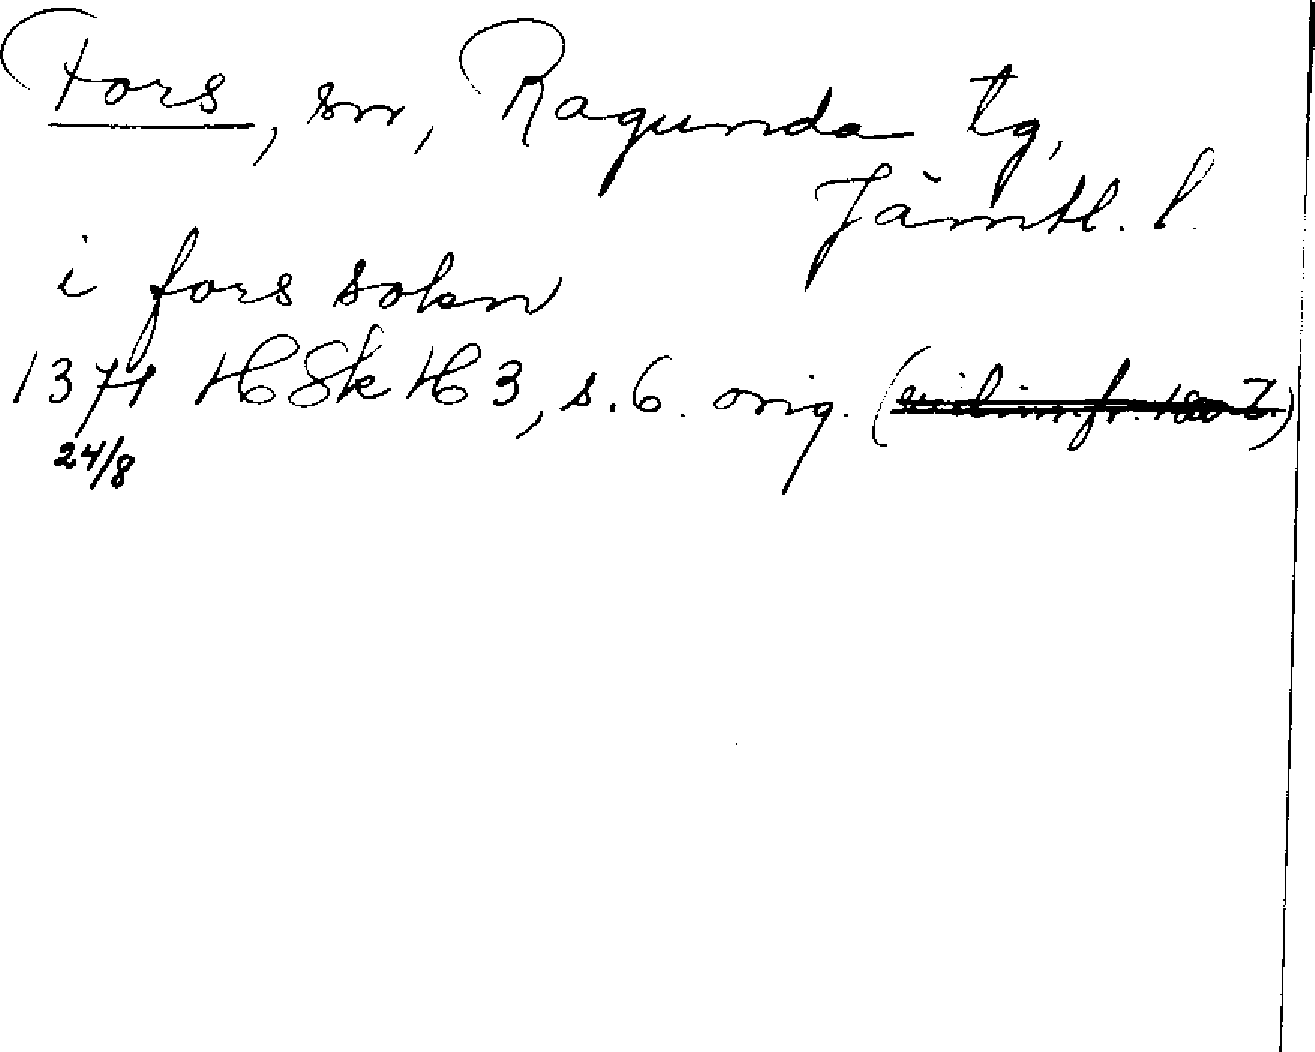 Fors, sn, Ragunda tg,
Jämtl. l.
i fors sokn
1374 HSkH 3, s. 6. orig.
24/8